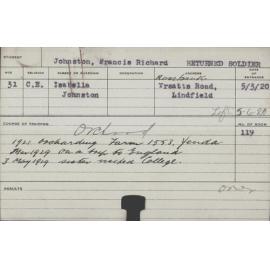 STUDENT
Johnston, Francis Richard RETURNED SOLDIER
AGE RELIGION PARENT OR GUARDIAN OCCUPATION ADDRESS DATE OF ENTRANCE
Rosebank
31 C.E. Isabella Treatts Road, 5/3/20
Johnston Lindfield
Left 5-6-20
COURSE OF TRAINING NO. OF ROOM
Orchard 119
1921 orcharding Farm 1553, Yenda
Mar 1929 on a trip to England
3 May 1929 sister visited College.
RESULTS
over